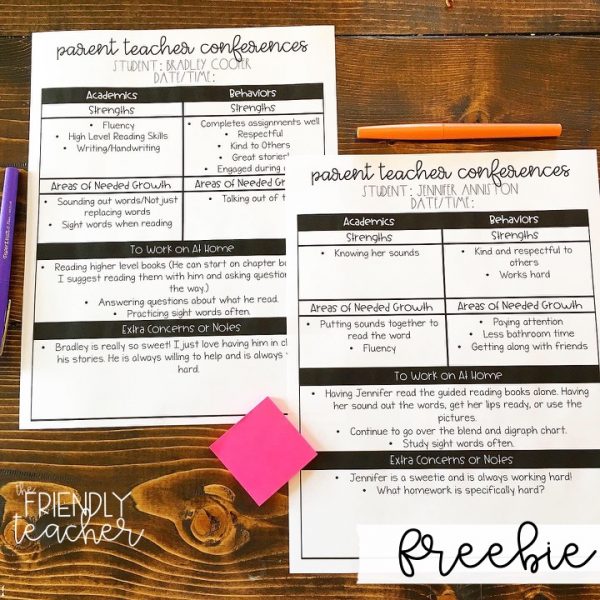 parent teacher conferences
STUDENT: BRADLEY COOPER
DATE/TIME:
Academics
Behaviors
Strengths
Strengths
Fluency
High Level Reading Skills
Writing/Handwriting
Completes assignments well
Respectful
Kind to Others
Great stories!
Engaged during
Areas of Needed Growth
Areas of Needed
Sounding out words/Not just
replacing words
Sight words when reading
Talking out of
To Work on At Home
Reading higher level books (He can start on chapter
I suggest reading them with him and asking
the way.)
Answering questions about what he read.
Practicing sight words often.
Extra Concerns or Notes
Bradley is really so sweet! I just love having him in
his stories. He is always willing to help and is always
hard.
parent teacher conferences
STUDENT: JENNIFER ANNISTON
DATE/TIME:
Academics
Behaviors
Strengths
Strengths
Knowing her sounds
Kind and respectful to
others
Works hard
Areas of Needed Growth
Areas of Needed Growth
Putting sounds together to
read the word
Fluency
Paying attention
Less bathroom time
Getting along with friends
To Work on At Home
Having Jennifer read the guided reading books alone. Having
her sound out the words, get her lips ready, or use the
pictures.
Continue to go over the blend and digraph chart.
Study sight words often.
Extra Concerns or Notes
Jennifer is a sweetie and is always working hard!
What homework is specifically hard?
the
FRIENDLY
teacher
freebie